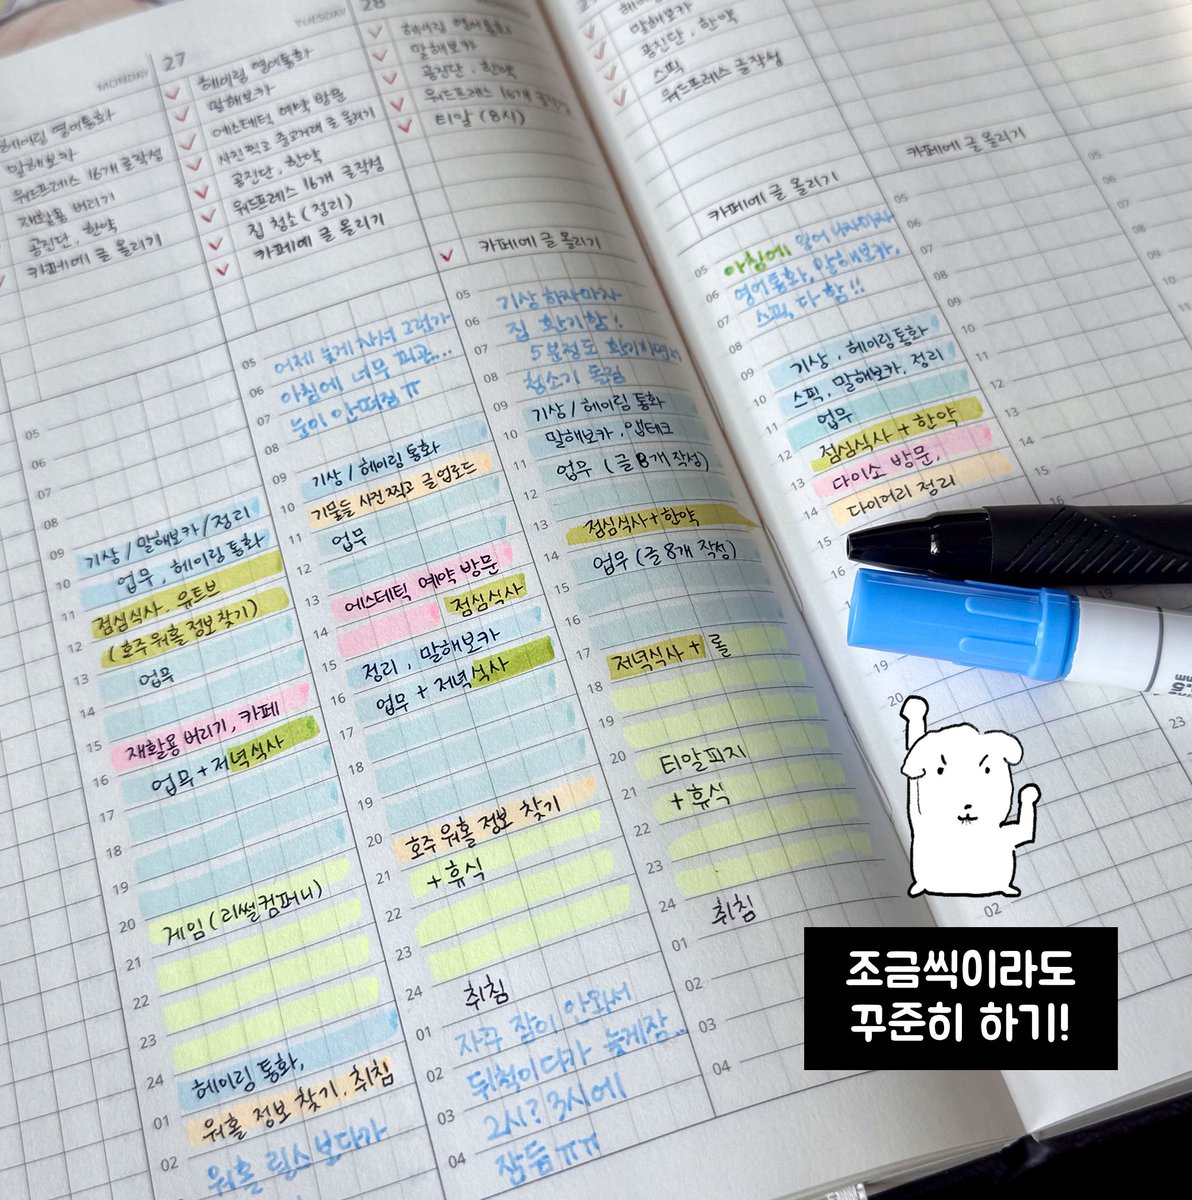 MONDAY
27
TUESDAY
28
헤이링 영어통화
말해보카
워드프레스 16개 글작성
재활용 버리기
공진단, 한약
카페에 글 올리기
05
06
07
08
09 기상 / 말해보카 / 정리
10 업무, 헤이링 통화
11 점심식사, 유튜브
12 (호주 워홀 정보찾기)
13 업무
14
15 재활용 버리기, 카페
16 업무 + 저녁식사
17
18
19
20 게임 (리썰컴퍼니)
21
22
23
24 헤이링 통화,
01 워홀 정보 찾기, 취침
02 워홀 릴스 보다가
헤이링 영어통화
말해보카
에스테틱 예약 방문
사진 찍고 중고거래 글 올리기
공진단, 한약
워드프레스 16개 글작성
집 청소 (정리)
카페에 글 올리기
05 어제 늦게 자서 그런가
06 아침에 너무 피곤...
07 눈이 안떠짐 ㅠ
08
09 기상 / 헤이링 통화
10 기물들 사진 찍고 글 업로드
11 업무
12
13 에스테틱 예약 방문
14 점심식사
15 정리, 말해보카
16 업무 + 저녁식사
17
18
19
20 호주 워홀 정보 찾기
21 + 휴식
22
23
24 취침
01 자꾸 잠이 안와서
02 뒤척이다가 늦게잠..
03 2시? 3시에
04 잠듬 ㅠㅠ
헤이링 영어통화
말해보카
공진단, 한약
워드프레스 16개 글작성
티알 (8시)
카페에 글 올리기
05 기상 하자마자
06 집 환기함!
07 5분정도 환기하면서
08 청소기 돌림
09 기상 / 헤이링 통화
10 말해보카, 앱테크
11 업무 (글 8개 작성)
12
13 점심식사 + 한약
14 업무 (글 8개 작성)
15
16
17 저녁식사 + 롤
18
19
20 티알피지
21 + 휴식
22
23
24 취침
01
02
03
04
말해보카
공진단, 한약
스픽
워드프레스 글작성
카페에 글 올리기
05 아침에 일어나자마자
06 영어통화, 말해보카,
07 스픽 다 함!!
08
09 기상, 헤이링통화
10 스픽, 말해보카, 정리
11 업무
12 점심식사 + 한약
13 다이소 방문,
14 다이어리 정리
15
19
20
02
카페에 글 올리기
05
06
07
08
09
10
11
12
13
14
15
23
05
06
07
조금씩이라도
꾸준히 하기!